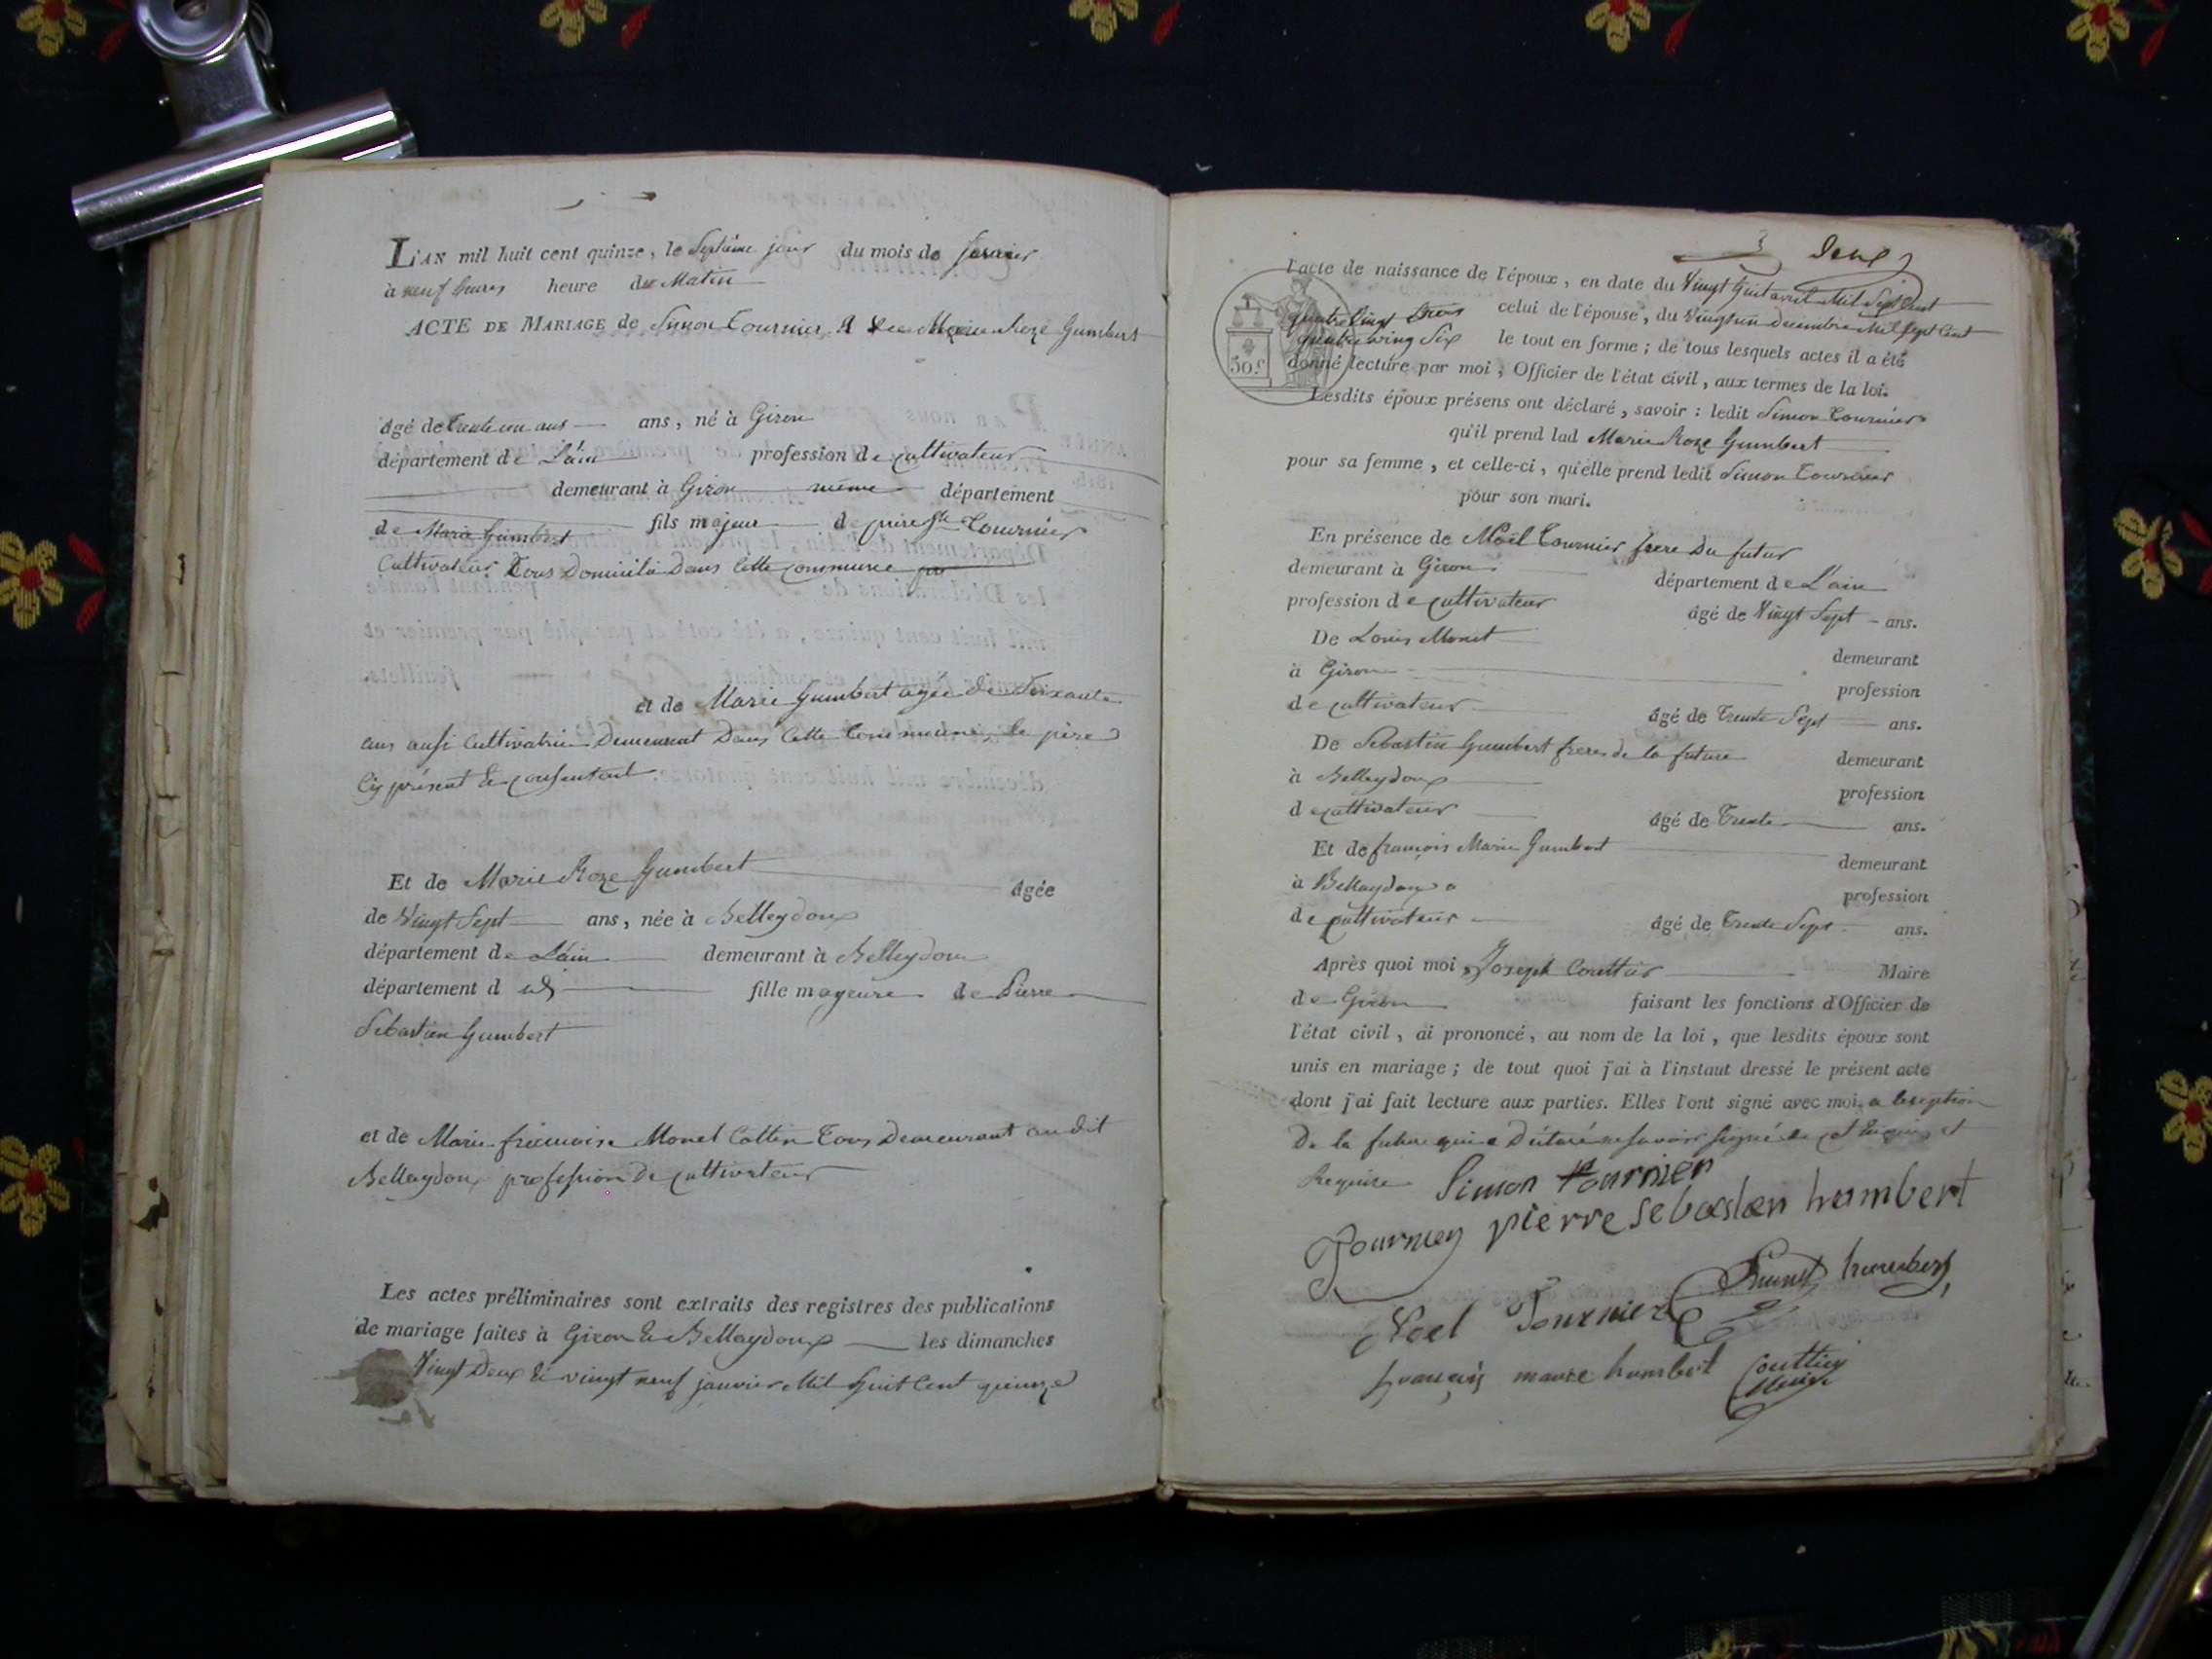 L'AN mil huit cent quinze, le Septième jour du mois de fevrier
à neuf heures heure du Matin
ACTE DE MARIAGE de Simon Tournier & de Marie Roze Gumbert
âgé de trente un ans ans, né à Giron
département de L'ain profession de cultivateur
demeurant à Giron même département
de Marie Gumbert fils majeur de Tournier
Cultivateur Tous Domicilié Dans Cette commune
et de Marie Gumbert agée de Soixante
ans ausi Cultivatrice Demeurant Dans Cette Commune, le père
Cy présent & consentant
Et de Marie Roze Gumbert âgée
de Vingt Sept ans, née à Belleydoux
département de L'ain demeurant à Belleydoux
département d fille mageure de Pierre
Sebastien Gumbert
et de Marie francoise Monet Cottin Tous Demeurant au dit
Belleydoux profession De cultivateur
Les actes préliminaires sont extraits des registres des publications
de mariage faites à Giron & Belleydoux les dimanches
Vingt Deux & vingt neuf janvier Mil huit Cent quinze
3 Deux
l'acte de naissance de l'époux, en date du Vingt huit avril Mil Sept Cent
quatre Vingt trois celui de l'épouse, du Vingt un decembre Mil Sept Cent
quatre ving Six le tout en forme; de tous lesquels actes il a été
50.c donné lecture par moi, Officier de l'état civil, aux termes de la loi.
Lesdits époux présens ont déclaré, savoir: ledit Simon Tournier
qu'il prend lad Marie Roze Gumbert
pour sa femme, et celle-ci, qu'elle prend ledit Simon Tournier
pour son mari.
En présence de Noël Tournier frere Du futur
demeurant à Giron département de L'ain
profession de cultivateur âgé de Vingt Sept ans.
De Louis Monet demeurant
à Giron profession
de cultivateur âgé de Trente Sept ans.
De Sebastien Gumbert freres de la future demeurant
à Belleydoux profession
de cultivateur âgé de Trente ans.
Et de françois Marie Gumbert demeurant
à Belleydoux profession
de cultivateur âgé de Trente Sept ans.
Après quoi moi, Joseph Couttier Maire
de Giron faisant les fonctions d'Officier de
l'état civil, ai prononcé, au nom de la loi, que lesdits époux sont
unis en mariage; de tout quoi j'ai à l'instant dressé le présent acte
dont j'ai fait lecture aux parties. Elles l'ont signé avec moi, a lexception
De la future qui a Déclaré ne savoir signé de Enquis et
Requise Simon tournier
Tournier pierre sebastien humbert
humbert
Noel Tournier
françois marie humbert Couttier
Maire